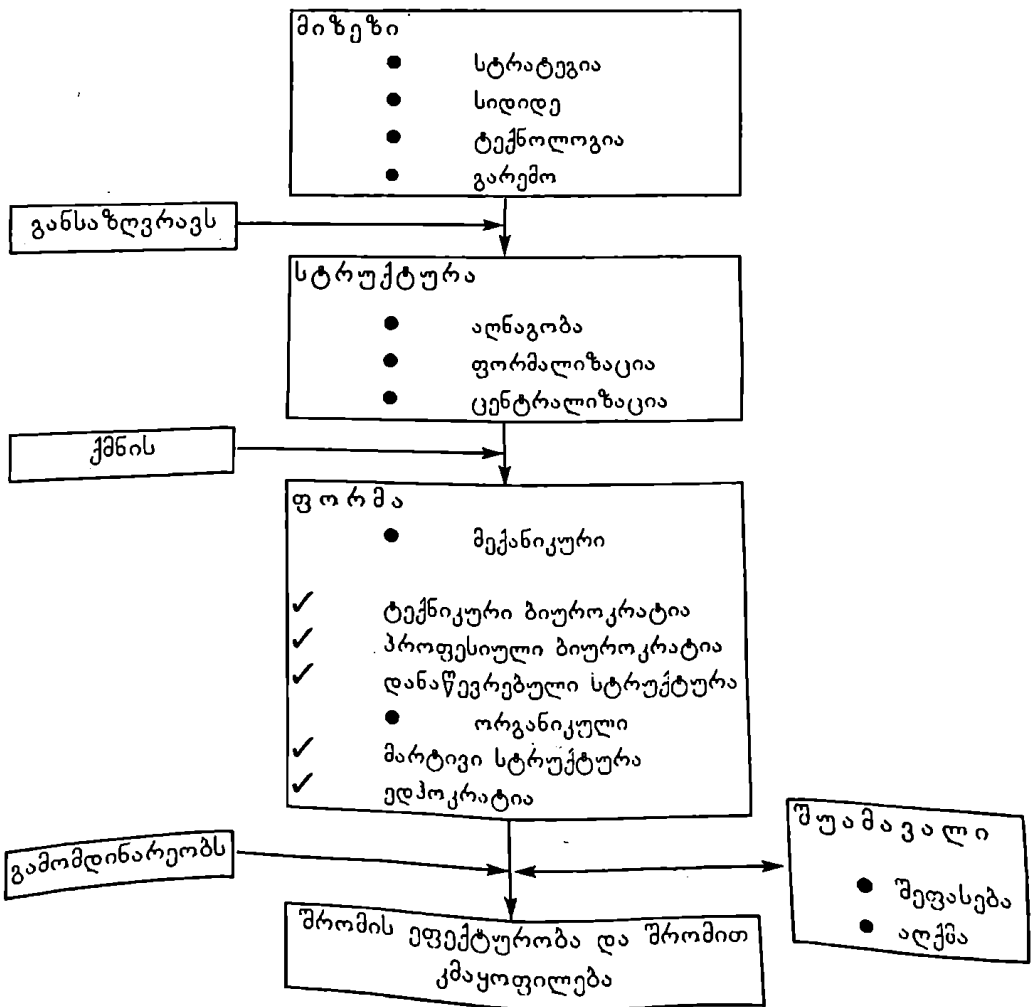 მიზეზი
● სტრატეგია
● სიდიდე
● ტექნოლოგია
● გარემო
განსაზღვრავს
სტრუქტურა
● აღნაგობა
● ფორმალიზაცია
● ცენტრალიზაცია
ქმნის
ფორმა
● მექანიკური
✓ ტექნიკური ბიუროკრატია
✓ პროფესიული ბიუროკრატია
✓ დანაწევრებული სტრუქტურა
● ორგანიკული
✓ მარტივი სტრუქტურა
✓ ედჰოკრატია
გამომდინარეობს
შუამავალი
● შეფასება
● აღქმა
შრომის ეფექტურობა და შრომით
კმაყოფილება